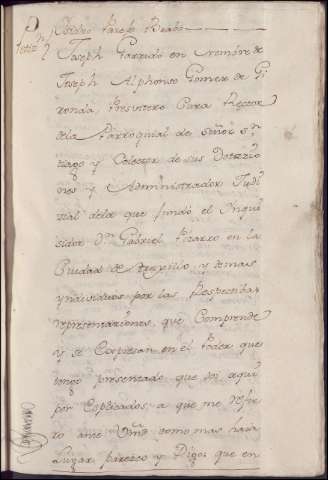 Petizn Isidro Parejo Brabo
Joseph Garrido en nombre de
Joseph Alphonso Gomez de Gi
ronda, Presvitero Cura Rector
dela Parroquial de señor sn
tiago y Colector de sus Dotazio
nes y Administrador Judi
zial dela que fundó el Inqui
sidor Dn Gabriel Pizarro en la
Ciudad de Truxillo, y demas
ynsividuos por las Respectibas
representaziones, que Comprende
y se Expresan en el Poder que
tengo presentado que doi aqui
por Expresados, a que me refie
ro ante Vmd como mas haia
Lugar parezco y Digo: que en